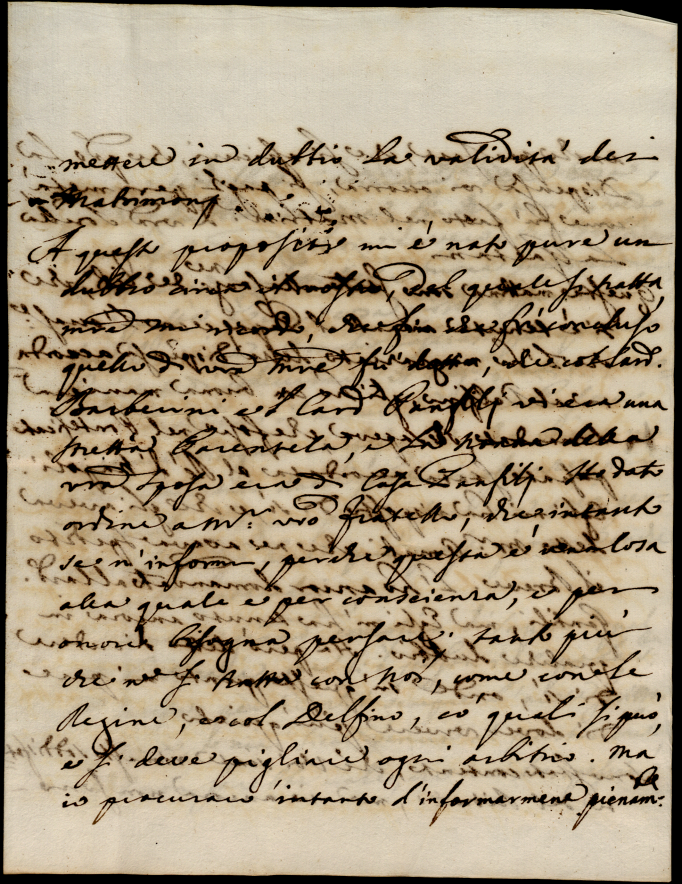 mettere in dubbio la validità dei
Matrimonj.
A questo proposito mi è nato pure un
dubbio circa il nostro, del quale si tratta,
mentre mi ricordo, che fin che fù concluso
quello di vra Mre fù detto, che col Card.
Barberini e 'l Card Panfilj vi era una
stretta Parentela, e la Nonna della
vra sposa era di Casa Panfilj. Ho dato
ordine a Mr. vro fratello, che intanto
se n'informi, perche questa è una cosa
alla quale e per conscienza, e per
onore bisogna pensare, tanto più
che n si tratta con Noi, come con le
Regine, e col Delfino, co' quali si può,
e si deve pigliare ogni arbitrio. Ma
io procurarò intanto d'informarmene pienam.te